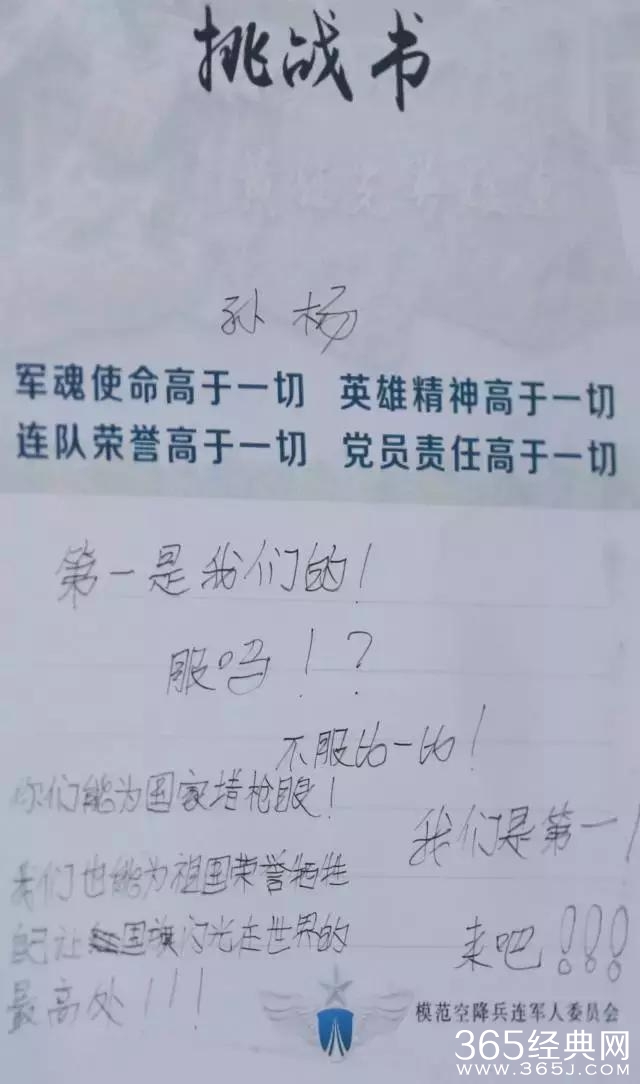 挑战书
孙杨
军魂使命高于一切 英雄精神高于一切
连队荣誉高于一切 党员责任高于一切
第一是我们的！
服吗！？
不服比一比！
你们能为国家堵枪眼！
我们也能为祖国荣誉牺牲
自己让国旗闪光在世界的
最高处！！！
我们是第一！
来吧！！！
模范空降兵连军人委员会
365经典网
WWW.365J.COM